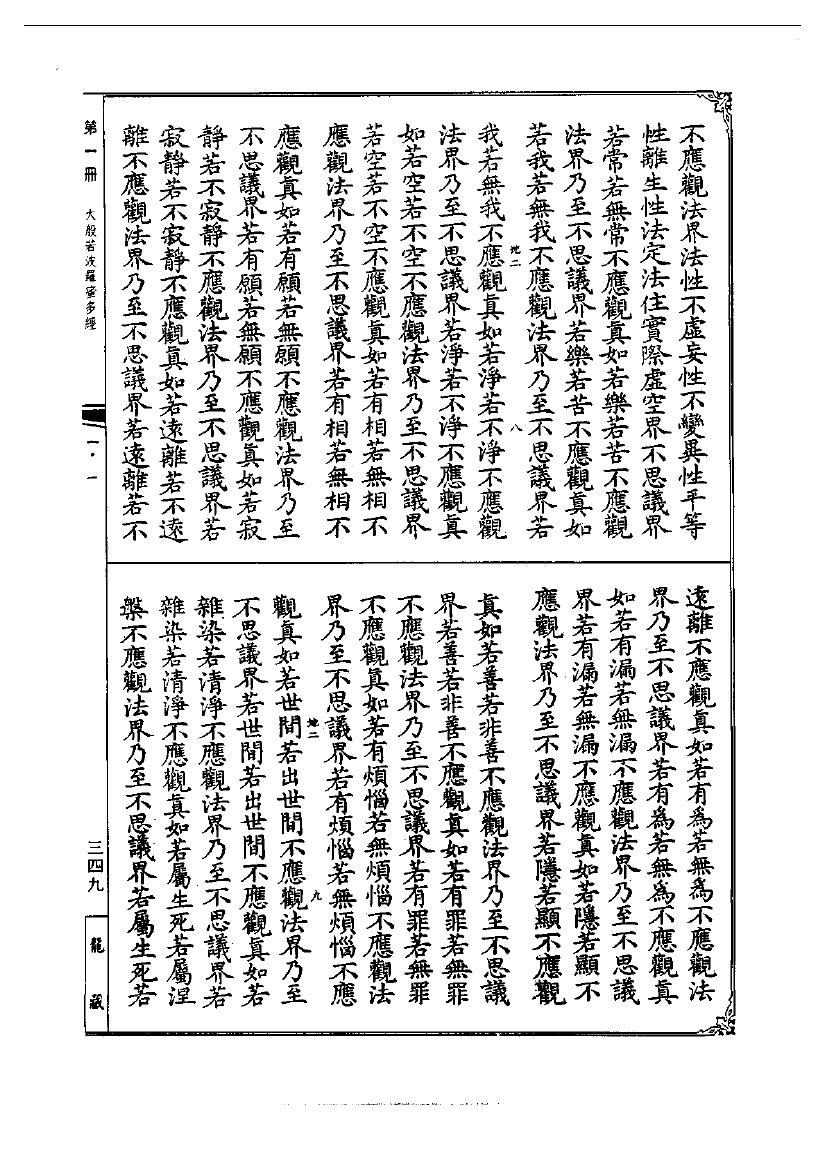 不應觀法界法性不虛妄性不變異性平等
性離生性法定法住實際虛空界不思議界
若常若無常不應觀真如若樂若苦不應觀
法界乃至不思議界若樂若苦不應觀真如
若我若無我不應觀法界乃至不思議界若
地二 八
我若無我不應觀真如若淨若不淨不應觀
法界乃至不思議界若淨若不淨不應觀真
如若空若不空不應觀法界乃至不思議界
若空若不空不應觀真如若有相若無相不
應觀法界乃至不思議界若有相若無相不
應觀真如若有願若無願不應觀法界乃至
不思議界若有願若無願不應觀真如若寂
靜若不寂靜不應觀法界乃至不思議界若
寂靜若不寂靜不應觀真如若遠離若不遠
離不應觀法界乃至不思議界若遠離若不
遠離不應觀真如若有為若無為不應觀法
界乃至不思議界若有為若無為不應觀真
如若有漏若無漏不應觀法界乃至不思議
界若有漏若無漏不應觀真如若隱若顯不
應觀法界乃至不思議界若隱若顯不應觀
真如若善若非善不應觀法界乃至不思議
界若善若非善不應觀真如若有罪若無罪
不應觀法界乃至不思議界若有罪若無罪
不應觀真如若有煩惱若無煩惱不應觀法
界乃至不思議界若有煩惱若無煩惱不應
地二 九
觀真如若世間若出世間不應觀法界乃至
不思議界若世間若出世間不應觀真如若
雜染若清淨不應觀法界乃至不思議界若
雜染若清淨不應觀真如若屬生死若屬涅
槃不應觀法界乃至不思議界若屬生死若
第一冊 大般若波羅蜜多經 一·一 三四九 龍藏